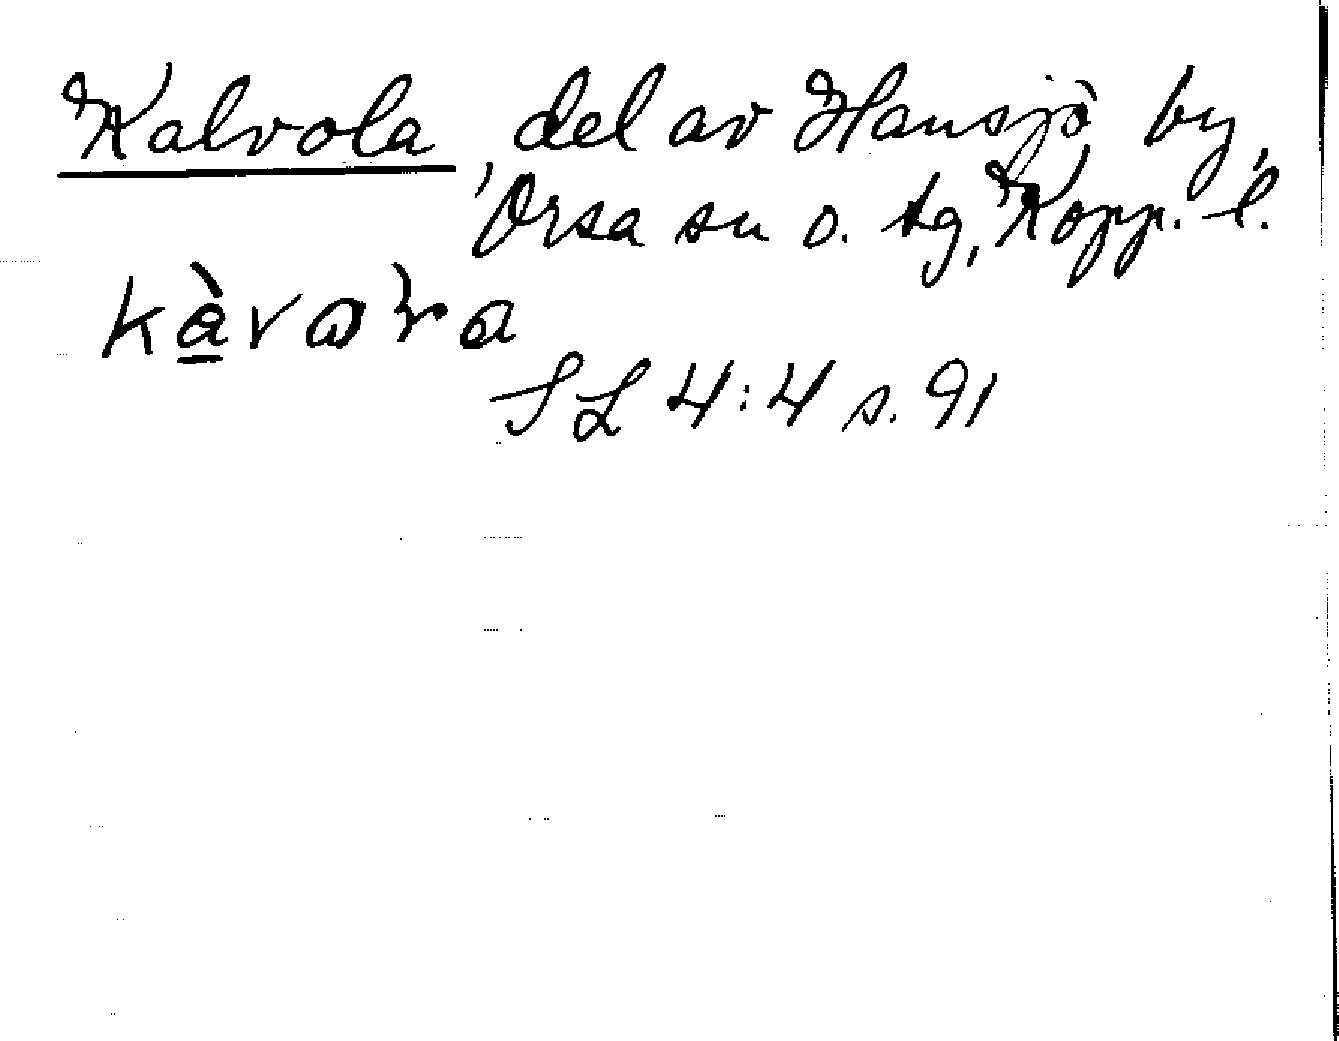 Kalvola, del av Hansjö by,
Orsa sn o. tg, Kopp. l.
SL 4:4 s. 91